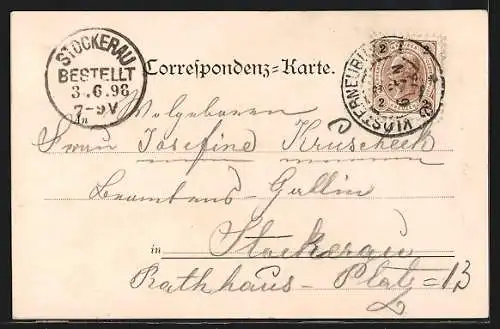 STOCKERAU
BESTELLT
3.6.98
7-9V
Correspondenz-Karte.
KLOSTERNEUBURG
2 2
2 2
An Wolgeboren
Frau Josefine Kruscheck
Beamtens-Gattin
in Stockerau
Rathhaus-Platz=13